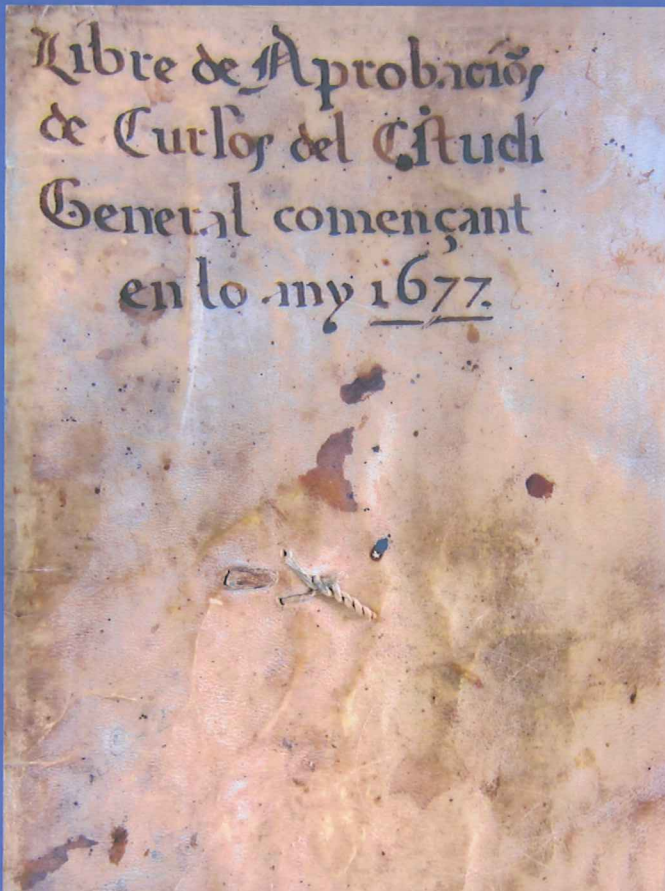 Libre de Aprobaciõs
de Cursos del Estudi
General començant
en lo any 1677.